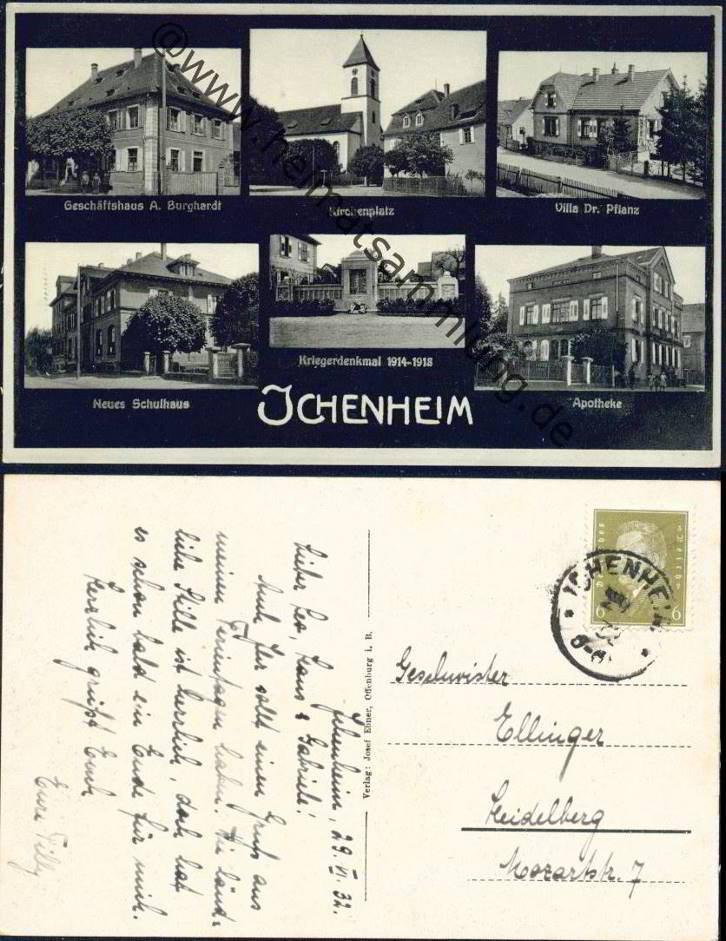 Geschäftshaus A. Burghardt
Kirchenplatz
Villa Dr. Pflanz
Neues Schulhaus
Kriegerdenkmal 1914-1918
Apotheke
ICHENHEIM
@www.heimatsammlung.de
Ichenheim, 29. VI. 32.
Lieber Leo, Hans & Gabriele!
Auch Ihr sollt einen Gruß aus
meinen Ferientagen haben. Die länd-
liche Stille ist herrlich, doch hat
es schon bald ein Ende für mich.
Herzlich grüßt Euch
Eure Tilly
Verlag: Josef Ebner, Offenburg i. B.
Deutsches Reich
6 6
ICHENHEIM
Geschwister
Ellinger
Heidelberg
Mozartstr. 7